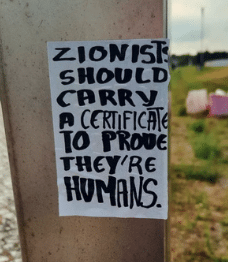 ZIONISTS
SHOULD
CARRY
A CERTIFICATE
TO PROVE
THEY'RE
HUMANS.